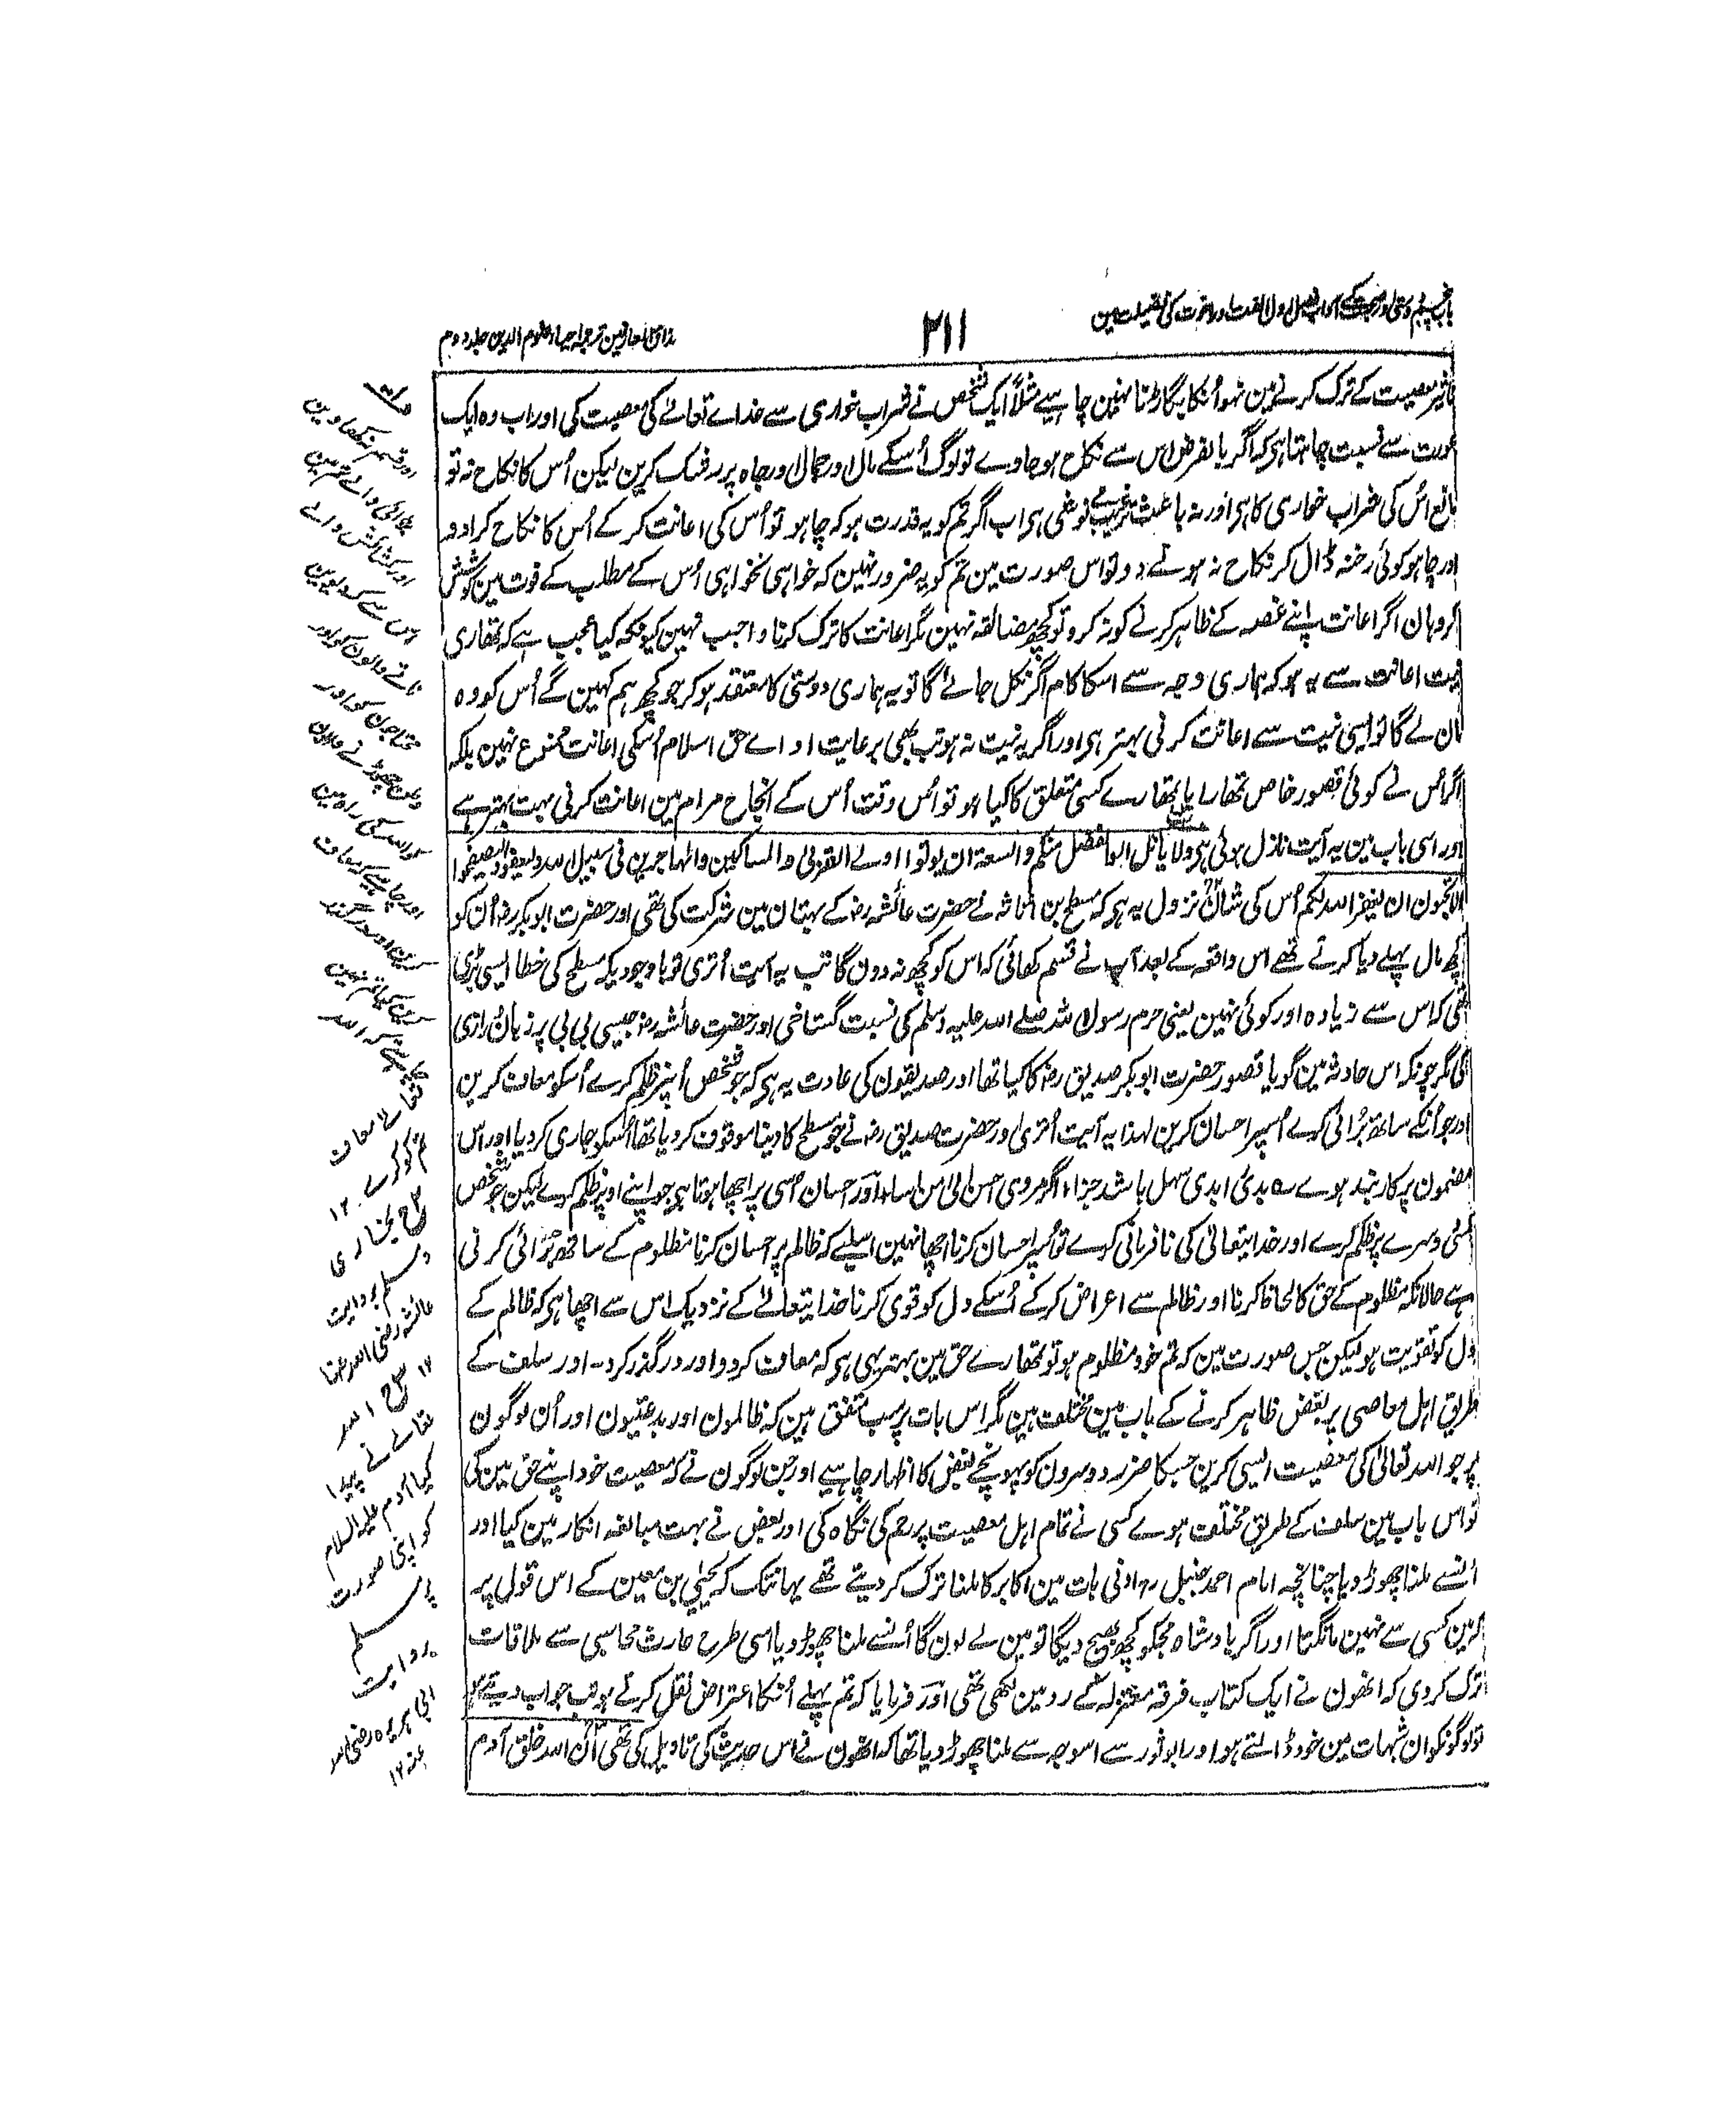 باب پنجم دوستی اور صحبت کے آداب فصل اول الفت اور اخوت کی فضیلت مین
۲۱۱
مذاق العارفین ترجمہ احیاء علوم الدین جلد دوم
تاثیر معصیت کے ترک کرنے مین نہو اُنکا بگاڑنا نہین چاہیے مثلاً ایک شخص نے شراب خواری سے خداے تعالےٰ کی معصیت کی اور اب وہ ایک
عورت سے نسبت چاہتا ہی کہ اگر بالفرض اس سے نکاح ہو جاوے تو لوگ اُسکے مال اور جمال اور جاہ پر رشک کرین لیکن اُس کا نکاح نہ تو
مانع اُس کی شراب خواری کا ہی اور نہ باعث ترغیب مے نوشی ہی اب اگر تم کو یہ قدرت ہو کہ چاہو تو اُس کی اعانت کر کے اُس کا نکاح کرادو
اور چاہو کوئی رخنہ ڈال کر نکاح نہ ہونے دو تو اس صورت مین تم کو یہ ضرور نہین کہ خواہی نخواہی اُس کے مطلب کے فوت مین کوشش
کرو ہان اگر اعانت اپنے غصہ کے ظاہر کرنے کو نہ کرو تو کچھ مضائقہ نہین مگر اعانت کا ترک کرنا واجب نہین کیونکہ کیا عجب ہے کہ تمھاری
نیت اعانت سے یہ ہو کہ ہماری وجہ سے اسکا کام اگر نکل جائے گا تو یہ ہماری دوستی کا معتقد ہو کر جو کچھ ہم کہین گے اُس کو وہ
مان لے گا تو ایسی نیت سے اعانت کرنی بہتر ہی اور اگر یہ نیت نہ ہو تب بھی برعایت اداے حق اسلام اُسکی اعانت ممنوع نہین بلکہ
اگر اُس نے کوئی قصور خاص تمھارا یا تمھارے کسی متعلق کا کیا ہو تو اُس وقت اُس کے انجاح مرام مین اعانت کرنی بہت بہتر ہے
اور اسی باب مین یہ آیت نازل ہوئی ہی ولا یاتل اولوا الفضل منکم والسعۃ ان یوتوا اولے القربی والمساکین والمہاجرین فی سبیل اللہ ولیعفوا ولیصفحوا
الا تحبون ان یغفر اللہ لکم اُس کی شان نزول یہ ہی کہ مسطح بن اثاثہ نے حضرت عائشہ رضہ کے بہتان مین شرکت کی تھی اور حضرت ابوبکر رضہ اُن کو
کچھ مال پہلے دیا کرتے تھے اس واقعہ کے بعد آپ نے قسم کھائی کہ اس کو کچھ نہ دون گا تب یہ آیت اُتری تو باوجودیکہ مسطح کی خطا ایسی بڑی
تھی کہ اس سے زیادہ اور کوئی نہین یعنی حرم رسول اللہ صلے اللہ علیہ وسلم کی نسبت گستاخی اور حضرت عائشہ رضہ جیسی بی بی پر زبان درازی
کی مگر چونکہ اس حادثہ مین گویا قصور حضرت ابوبکر صدیق رضہ کا کیا تھا اور صدیقون کی عادت یہ ہی کہ جو شخص اُنپر ظلم کرے اُسکو معاف کرین
اور جو اُنکے ساتھ بُرائی کرے اُسپر احسان کرین لہذا یہ آیت اُتری اور حضرت صدیق رضہ نے جو مسطح کا دینا موقوف کر دیا تھا اُسکو جاری کر دیا اور اس
مضمون پر کاربند ہوے ؎ بدی را بدی سہل باشد جزا، اگر مردی احسن الیٰ من اساء، اور احسان اُسی پر اچھا ہوتا ہی جو اپنے اوپر ظلم کرے لیکن جو شخص
کسی دوسرے پر ظلم کرے اور خدایتعالیٰ کی نافرمانی کرے تو اُسپر احسان کرنا اچھا نہین اسلیے کہ ظالم پر احسان کرنا مظلوم کے ساتھ بُرائی کرنی
ہے حالانکہ مظلوم کے حق کا لحاظ کرنا اور ظالم سے اعراض کرکے اُسکے دل کو قوی کرنا خدایتعالےٰ کے نزدیک اس سے اچھا ہی کہ ظالم کے
دل کو تقویت ہو لیکن جس صورت مین کہ تم خود مظلوم ہو تو تمھارے حق مین بہتر یہی ہی کہ معاف کردو اور درگذر کرو۔ اور سلف کے
طریق اہل معاصی پر بغض ظاہر کرنے کے باب مین مختلف ہین مگر اس بات پر سب متفق ہین کہ ظالمون اور بدعتیون اور اُن لوگون
پر جو اللہ تعالیٰ کی معصیت ایسی کرین جسکا ضرر دوسرون کو پہونچے بغض کا اظہار چاہیے اور جن لوگون نے کہ معصیت خود اپنے حق مین کی
تو اس باب مین سلف کے طریق مختلف ہوے کسی نے تمام اہل معصیت پر رحم کی نگاہ کی اور بعض نے بہت مبالغہ انکار مین کیا اور
اُنسے ملنا چھوڑ دیا چنانچہ امام احمد حنبل رہ ادنی بات مین اکابر کا ملنا ترک کر دیتے تھے یہانتک کہ یحییٰ بن معین کے اس قول پر
کہ مین کسی سے نہین مانگتا اور اگر بادشاہ مجکو کچھ بھیج دیگا تو مین لے لون گا اُنسے ملنا چھوڑ دیا اسی طرح حارث محاسبی سے ملاقات
ترک کر دی کہ انھون نے ایک کتاب فرقہ معتزلہ کے رد مین لکھی تھی اور فرمایا کہ تم پہلے اُنکا اعتراض نقل کرتے ہو تب جواب دیتے ہو
تو لوگونکو ان شبہات مین خود ڈالتے ہو اور ابو ثور سے اسوجہ سے ملنا چھوڑ دیا تھا کہ انھون نے اس حدیث کی تاویل کی تھی ان اللہ خلق آدم
اور قسم نہ کھاوین
بڑائی والے تم مین
اور کشائش والے
اس سے کہ دیوین
ناتے والون کو اور
محتاجون کو اور
وطن چھوڑنے والون
کو اللہ کی راہ مین
اور چاہیے کہ معاف
کرین اور درگذر
کرین کیا تم نہین
چاہتے کہ اللہ
تعالےٰ معاف
تم کو کرے ۱۲
بخاری
ومسلم بروایت
عائشہ رضی اللہ عنہا
۱۲ اللہ
تعالے نے پیدا
کیا آدم علیہ السلام
کو اپنی صورت
پر مسلم
بروایت
ابی ہریرہ رضی اللہ
عنہ ۱۲